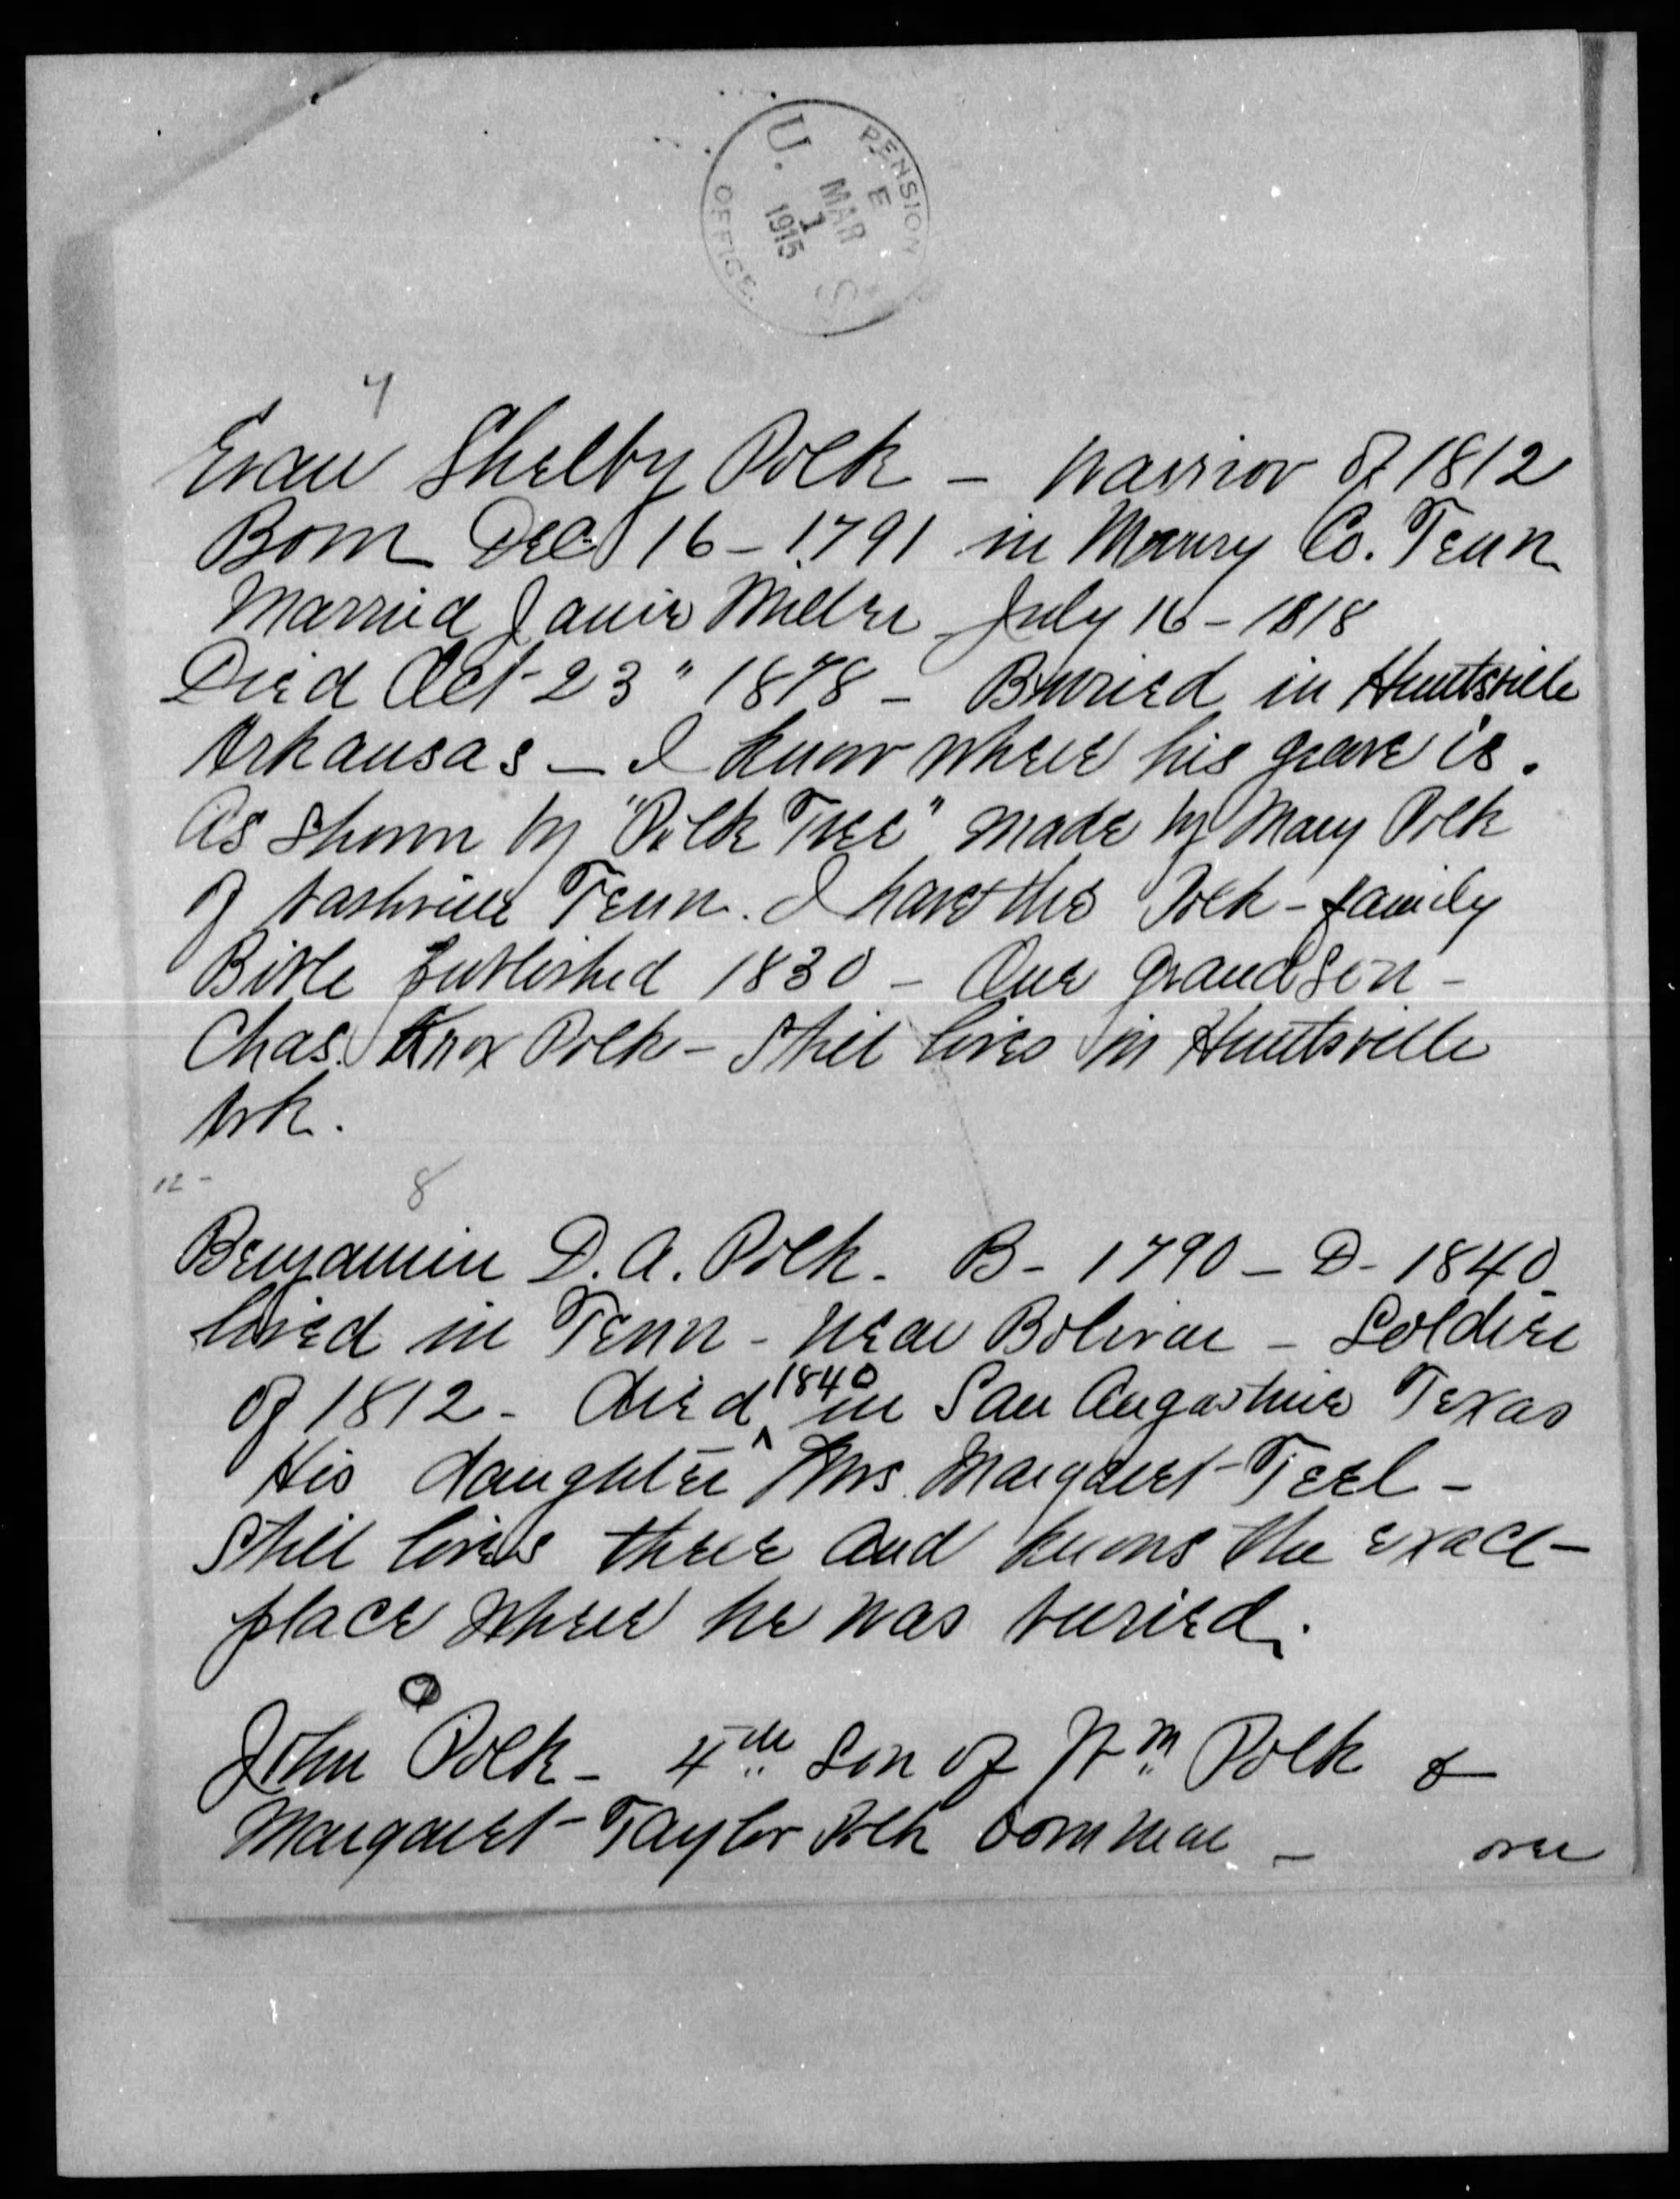 U. S. PENSION OFFICE.
E
MAR
1
1915
7
Evan Shelby Polk - Warrior of 1812
Born Dec 16 - 1791 in Maury Co. Tenn
Married Janie Miller July 16 - 1818
Died Oct 23" 1878 - Burried in Huntsville
Arkansas - I know where his grave is.
As shown by "Polk Tree" made by Mary Polk
of Nashville Tenn. I have the Polk - family
Bible published 1830 - One grandson -
Chas. Knox Polk - still lives in Huntsville
Ark.
12 -
8
Benjamin D. A. Polk. B - 1790 - D - 1840
lived in Tenn - near Bolivar - Soldier
of 1812 - died 1840 in San Augustine Texas
His daughter Mrs. Margaret Teel -
still lives there and knows the exact
place where he was buried.
9
John Polk - 4th son of Wm. Polk &
Margaret Taylor Polk born near - over